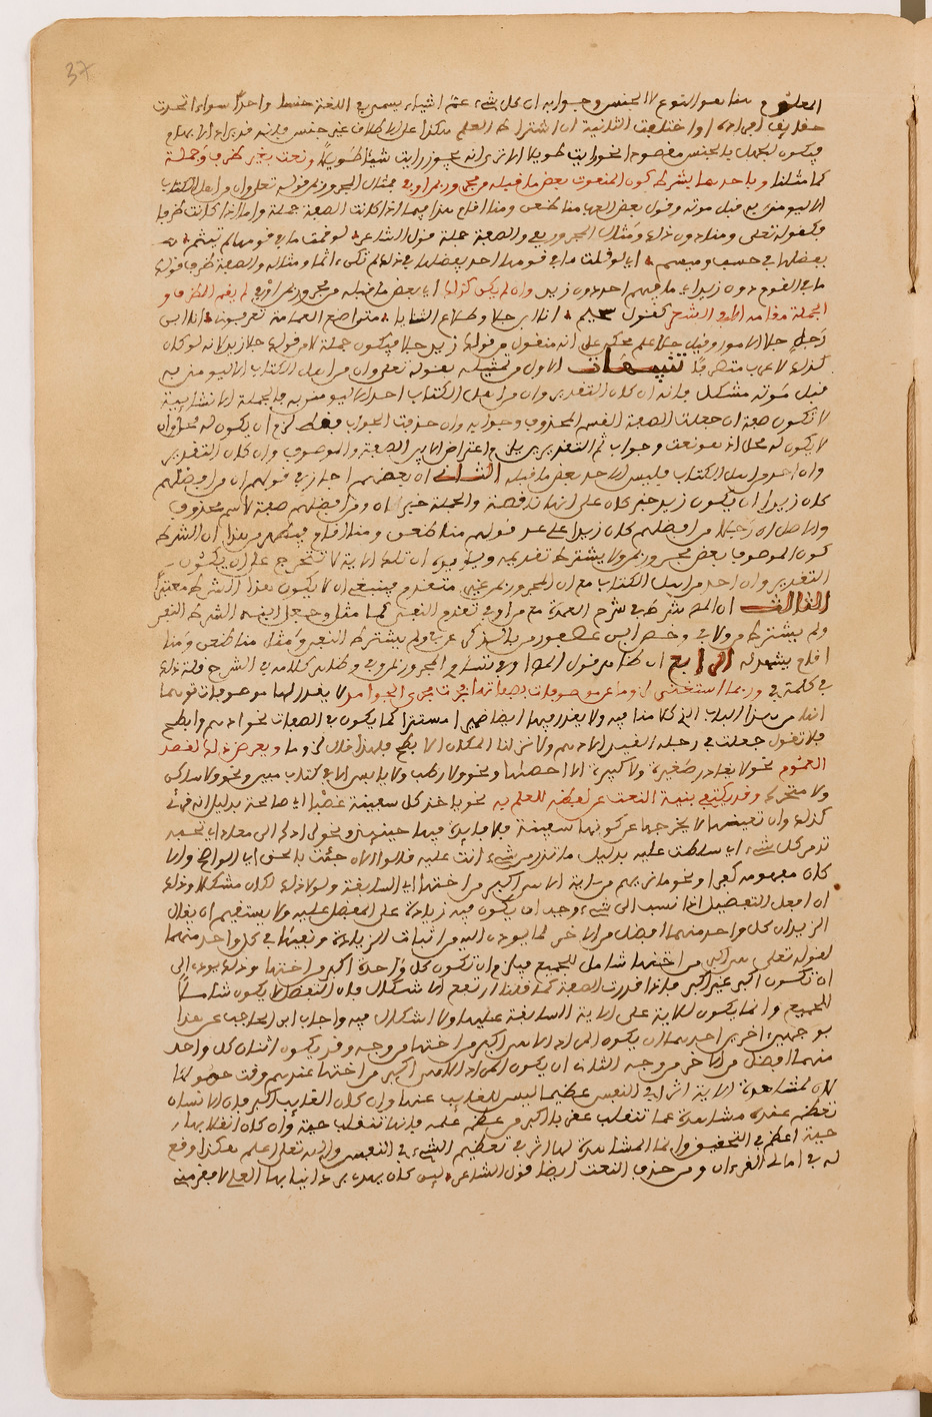 37
المعلوم هنا هو النوع لا الجنس وجوابه ان كل شيء عم اشياء يسمى في اللغة جنسا واحدا سواء اتحدت
حقايق افراده او اختلفت الثانية ان اشتراط العلم هكذا على الاطلاق غير
فيكون الجنس مقصودا نحو رايت طويلا الا ترى انه يجوز رايت شيئا طويلا ونعت بغير ظرف وجملة
كما مثلنا وباحدهما بشرط كون المنعوت بعض ما قبله من مجرور بمن او في مثال المجرور بمن قوله تعلى وان من اهل الكتاب
الا ليومنن به قبل موته وقول بعض العرب منا ظعن ومنا اقام هذا فيما اذا كانت الصفة جملة واما اذا كانت ظرفا
فكقوله تعلى ومنا دون ذلك ومثال المجرور بفي والصفة جملة قول الشاعر لو قلت ما في قومها لم تيثم
يفضلها في حسب وميسم اي لو قلت ما في قومها احد يفضلها في ذلك لم تكن اثما ومثاله والصفة ظرف قولك
ما في القوم دون زيد اي ما فيهم احد دون زيد وان لم يكن كذلك اي بعض ما قبله من مجرور بمن او في لم يقم الظرف و
الجملة مقامه الا في الشعر كقول سحيم انا ابن جلا وطلاع الثنايا متى اضع العمامة تعرفوني انا ابن
رجل جلا الامور وقيل جلا علم محكي على انه منقول من قولك زيد جلا فيكون جملة لا من قولك جلا زيد لانه لو كان
كذلك لاعرب متصرفا تنبيهات الاول في تمثيله بقوله تعلى وان من اهل الكتاب الا ليومنن به
قبل موته مشكل فانه ان كان التقدير وان من اهل الكتاب احد الا ليومنن به فالجملة الانشايية
لا تكون صفة ان جعلت الصفة القسم المحذوف وجوابه وان حذفت الجواب فقط لزم ان يكون له محل وان
لا يكون له محل اذ هو نعت وجواب ثم التقدير يلزم اعتراض الا بين الصفة والموصوف وان كان التقدير
وان احد من اهل الكتاب فليس الاحد بعض ما قبله الثاني ان بعضهم اجاز في قولهم ان من افضلهم
كان زيدا ان يكون زيد خبر كان على انها ناقصة والجملة خبر ان ومن افضلهم صفة لاسم محذوف
والاصل ان رجلا من افضلهم كان زيدا على حد قولهم منا ظعن ومنا اقام فيظهر من هذا ان الشرط
كون الموصوف بعض مجرور بمن ولا يشترط تقديمه ويؤيده ان تلك الاية لا تخرج على ان يكون
التقدير وان احد من اهل الكتاب مع ان المجرور بمن غير متقدم فينبغي ان لا يكون هذا الشرط معتبرا
الثالث ان المص شرط في شرح العمدة مع من او في تقدم النعت كما مثل وجعل ابنه الشرط النعت
ولم يشترط من ولا في وخص ابن عصفور من بالذكر عن في ولم يشترط النعت ومثل منا ظعن ومنا
اقام يشهد له الرابع ان ظاهر قول المص او في تساوي المجرور بمن وفي وظاهر كلامه في الشرح قلة ذلك
في كلمة في وربما استغنى لزوما عن موصوفات بصفاتها فجرت مجرى الجوامد لا يقدر لها موصوفات توسعا
انظر من هذا الباب الذي كلامنا فيه ولا يقدر فيها ايضا ضمير مستتر كما يكون في الصفات نحو ادهم وابطح
فلا تقول جعلت في رجله القيد الادهم ولا نزلنا المكان الابطح فلهذا قال لزوما ويعرض ذلك لقصد
العموم نحو لا يغادر صغيرة ولا كبيرة الا احصاها ونحو ولا رطب ولا يابس الا في كتاب مبين ونحو ولا ساكن
ولا متحرك وقد يكتفى بنية النعت عن لفظه للعلم به نحو ياخذ كل سفينة غصبا اي صالحة بدليل انه قرئ
كذلك وان تعييبها لا يخرجها عن كونها سفينة فلا فايدة فيها حينئذ ونحو لرادك الى معاد اي تحبه
تدمر كل شيء اي سلطت عليه بدليل ما تذر من شيء اتت عليه قالوا الان جئت بالحق اي الواضح والا
كان مفهومه كفرا ونحو ما نريهم من اية الا هي اكبر من اختها اي السابقة ولولا ذلك لكان مشكلا وذلك
ان افعل التفضيل اذا نسب الى شيء وجب ان يكون فيه زيادة على المفضل عليه ولا يستقيم ان يقال
الزيدان كل واحد منهما افضل من الاخر لما يوده اليه من اثبات الزيادة ونفيها في كل واحد منهما
لقوله تعلى هي اكبر من اختها شامل للجميع فيلزم ان تكون كل واحدة اكبر من اختها وذلك يودي الى
ان تكون اكبر غير اكبر فاذا قدرت الصفة كما قلنا ارتفع الاشكال فان التفضيل لا يكون شاملا
للجميع وانما يكون للاية على الاية السابقة عليها ولا اشكال فيه واجاب ابن الحاجب عن هذا
بوجهين اخرين احدهما ان يكون المراد الا هي اكبر من اختها من وجه وقد يكون اثنان كل واحد
منهما افضل من الاخر من وجه الثاني ان يكون المراد الا هي اكبر من اختها عندهم وقت حصولها
لان لمشاهدة الاية اثرا في النفس عظيما ليس للغايب عنها وان كان الغايب اكبر فان الانسان
تعظم عنده مشاهدة عصا تنقلب عقربا اكبر من عظم علمه بانها تنقلب حية وان كان انقلابها
حية اعظم في التحقيق وانما المشاهدة لها اثر في تعظيم الشيء في النفس والله تعلى اعلم هكذا وقع
له في امالي القرءان ومن حذف النعت ايضا قول الشاعر